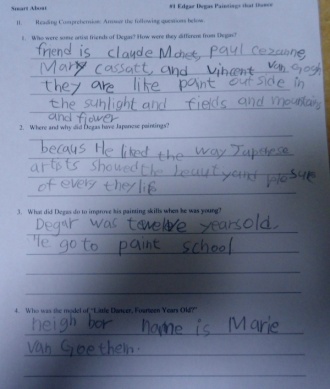 Smart About #1 Edgar Degas Paintings that Dance
II. Reading Comprehension: Answer the following questions below.
1. Who were some artist friends of Degas? How were they different from Degas?
friend is claude Monet, paul cezanne,
Mary cassatt, and Vincent van gogh
they are like paint outside in
the sunlight and fields and mountains
and flower
2. Where and why did Degas have Japanese paintings?
becaus He liked the way Japanese
artists showed the beauty and
of every they life
3. What did Degas do to improve his painting skills when he was young?
Degar was twelve years old.
He go to paint school
4. Who was the model of "Little Dancer, Fourteen Years Old?"
neigh bor name is Marie
van Goethem.